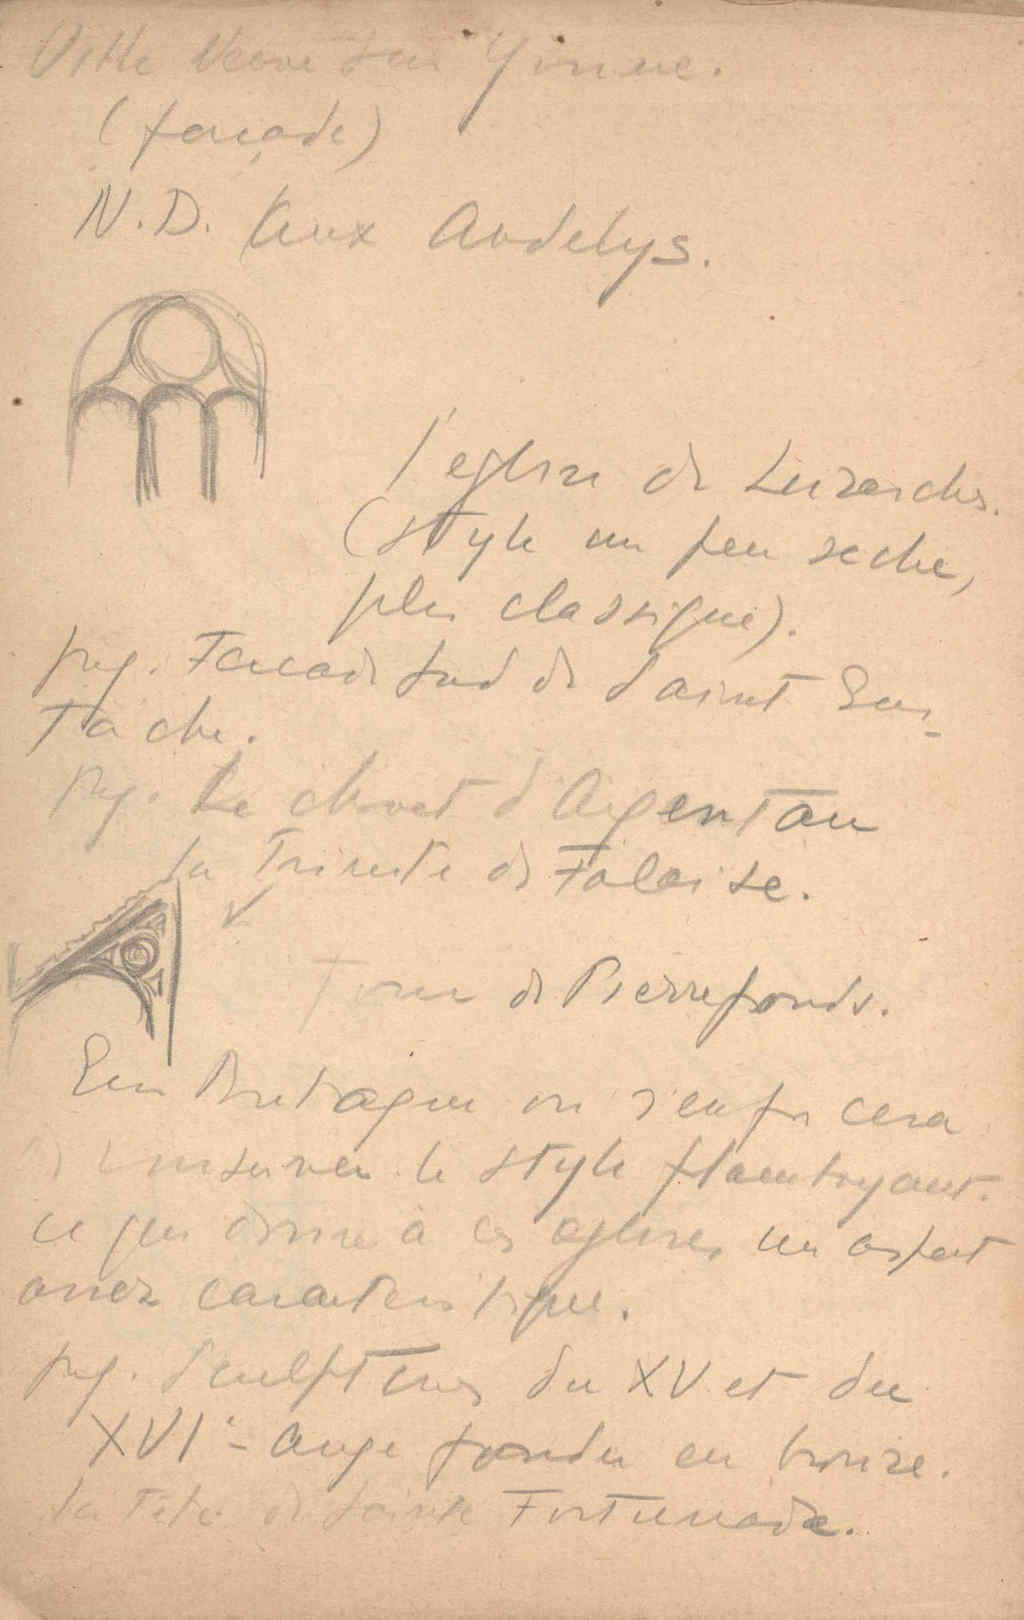 Ville Neuve sur Yonne.
(façade)
N.D. Aux Andelys.
l'eglise de Luzarches.
(style un peu seche,
plus classique).
proj. Facade Sud de Saint Eus-
tache.
proj. Le chevet d'Argentan
la Trinité de Falaise.
Tour de Pierrefonds.
En Bretagne on s'enforcera
de conserver le style flamboyant.
ce qui donne à ces eglises un aspect
assez caracteristique.
proj. Sculptures du XV et du
XVIe - Ange fondu en bronze.
la Tete de Sainte Fortunade.